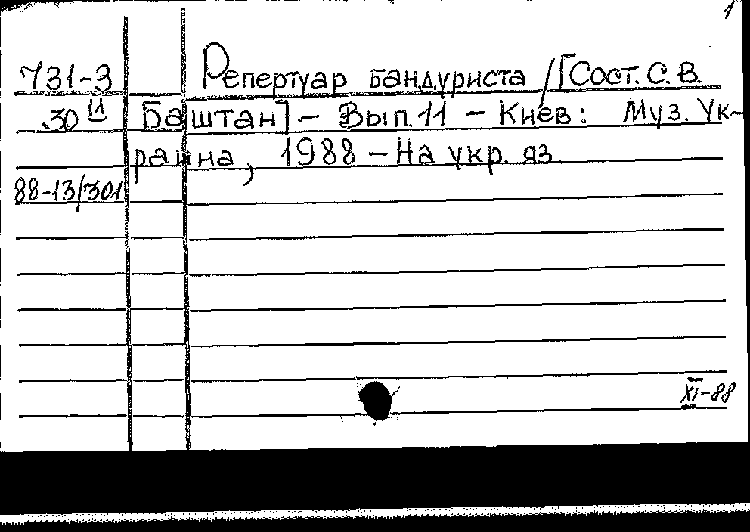 1
731-3 Репертуар бандуриста / [Сост. С. В.
30 11 Баштан] - Вып. 11 - Киев: Муз. Ук-
раина, 1988 - На укр. яз
88-13/301
XI-88